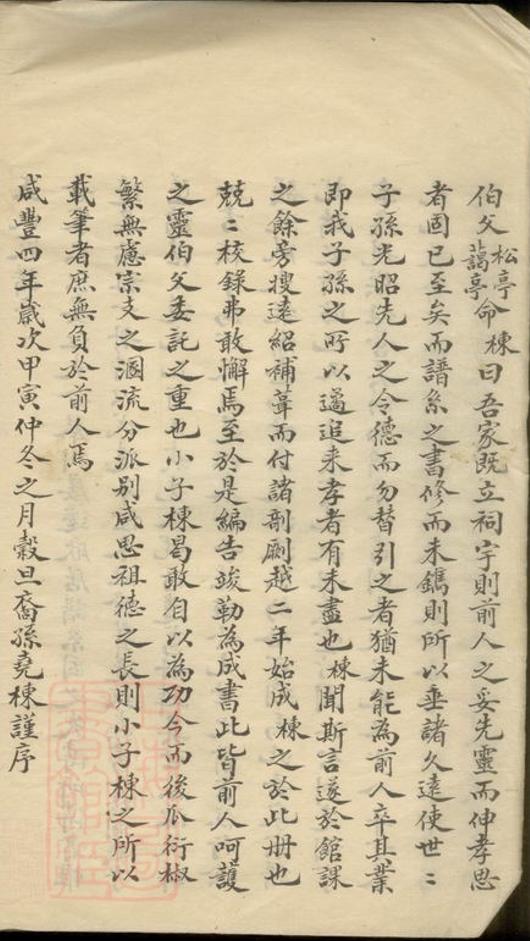 伯父松亭藹亭命棟曰吾家既立祠宇則前人之妥先靈而伸孝思
者固已至矣而譜系之書修而未鐫則所以垂諸久遠使世〻
子孫光昭先人之令德而勿替引之者猶未能為前人卒其業
即我子孫之所以遹追来孝者有未盡也棟聞斯言遂於館課
之餘旁搜遠紹補葺而付諸剞劂越二年始成棟之於此册也
兢〻校錄弗敢懈焉至於是編告竣勒為成書此皆前人呵護
之靈伯父委託之重也小子棟曷敢自以為功今而後瓜衍椒
繁無慮宗支之溷流分派别咸思祖德之長則小子棟之所以
載筆者庶無負於前人焉
咸豐四年歲次甲寅仲冬之月穀旦裔孫堯棟謹序